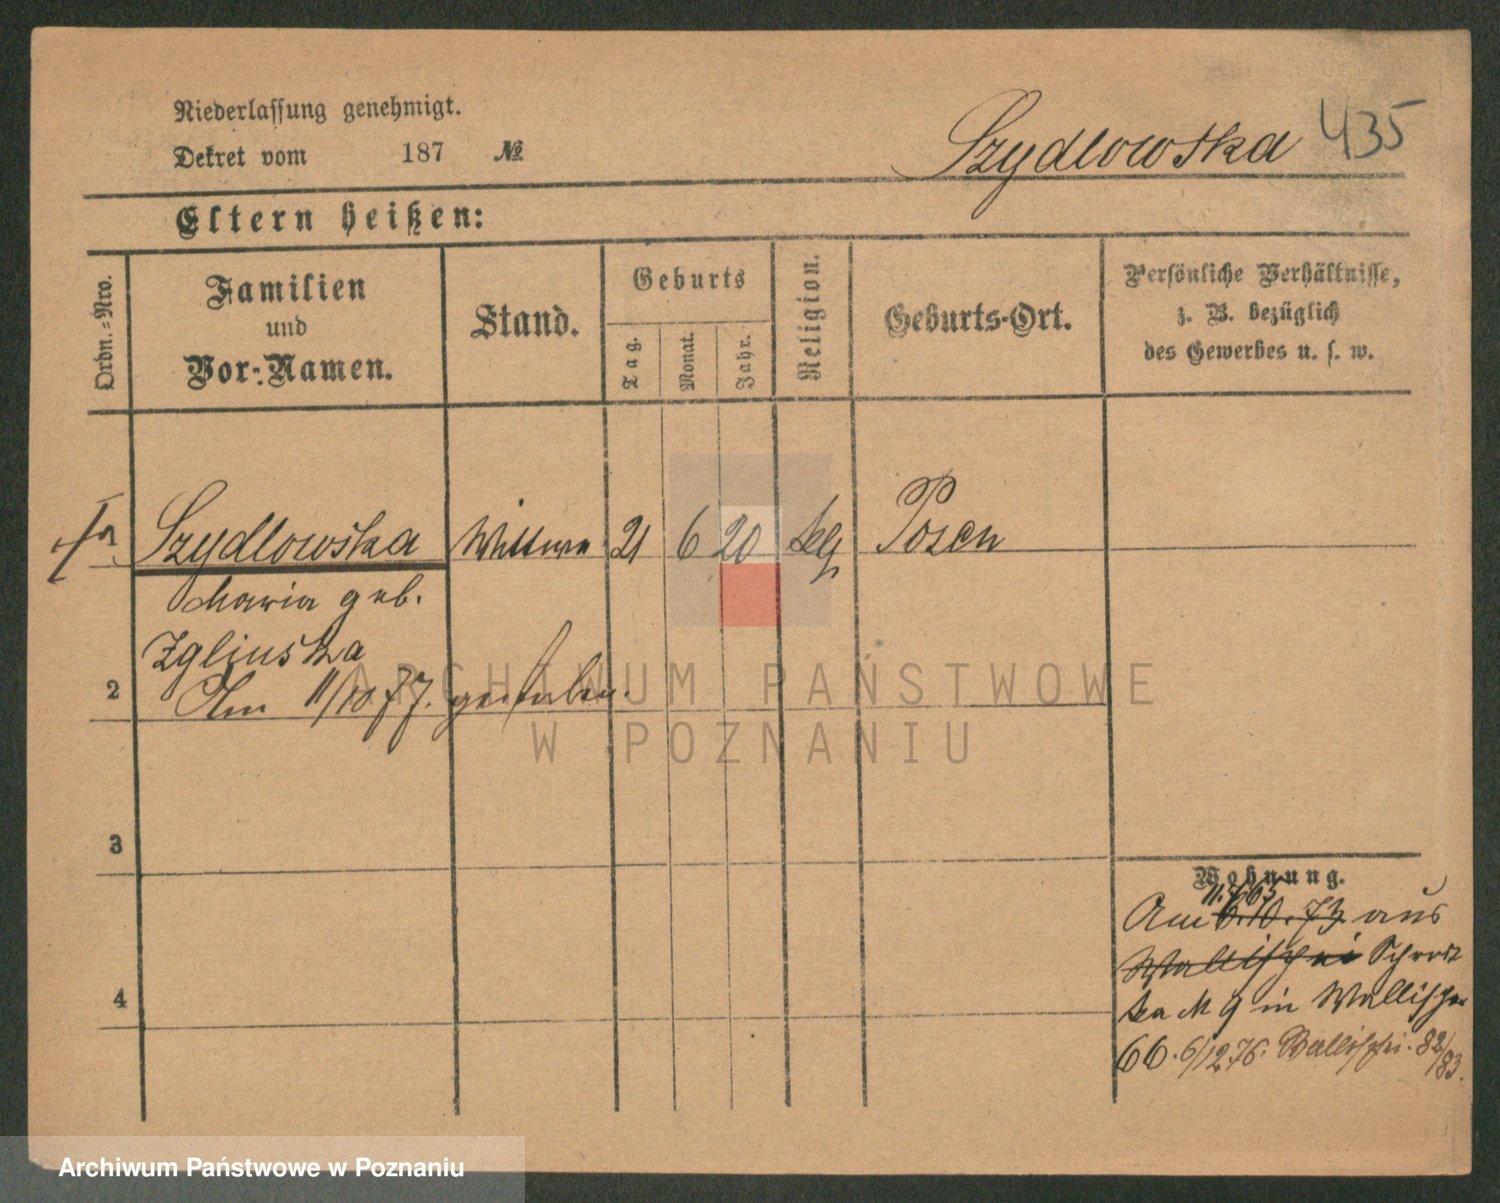 Niederlassung genehmigt.
Dekret vom 187 №
Szydlowska 435
Eltern heißen:
Ordn.=Nro.
Familien
und
Vor-Namen.
Stand.
Geburts
Tag.
Monat.
Jahr.
Religion.
Geburts-Ort.
Persönliche Verhältnisse,
z. B. bezüglich
des Gewerbes u. s. w.
Szydlowska Wittwe 21 6 20 Posen
Maria geb.
Zglinska
2
Am 11/10 77. gestorben.
ARCHIWUM PAŃSTWOWE
W POZNANIU
3
Wohnung.
Am 6.10.73. aus
Wallischei
4
9 in Wallischei
66. 6/12 76. Wallischei. 82/83.
Archiwum Państwowe w Poznaniu